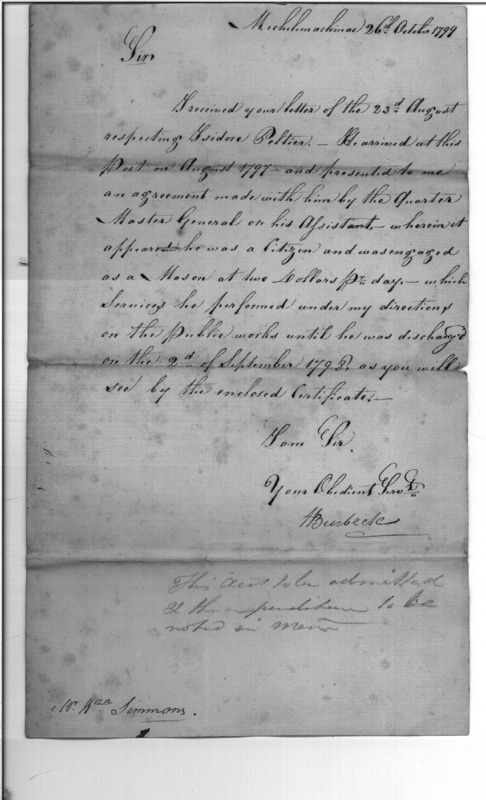 Michilimackinac 26th October 1799
Sir
I received your letter of the 23d August
respecting Isidore Peltier. — He arrived at this
Post in August 1797 — and presented to me
an agreement made with him by the Quarter
Master General or his Assistant — wherein it
appeared he was a Citizen and was engaged
as a Mason at two Dollars Pr day. — which
Services he performed under my directions
on the Public works until he was discharg'd
on the 2d of September 1798. as you will
see by the enclosed Certificate. —
I am Sir
Your Obedient Servt
HBurbeck
This acct to be admitted
& the expenditure to be
noted in
Mr Wm Simmons.